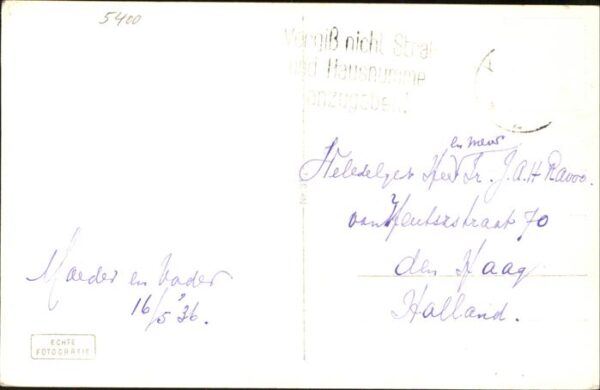 5400
Vergiß nicht Straß
und Hausnumme
anzugeben!
en mevr
WelEdelgeb Heer Jr. J.A.H Ravoo.
van Heutszstraat 70
den Haag
Holland.
Moeder en Vader
16/5 '36.
ECHTE
FOTOGRAFIE